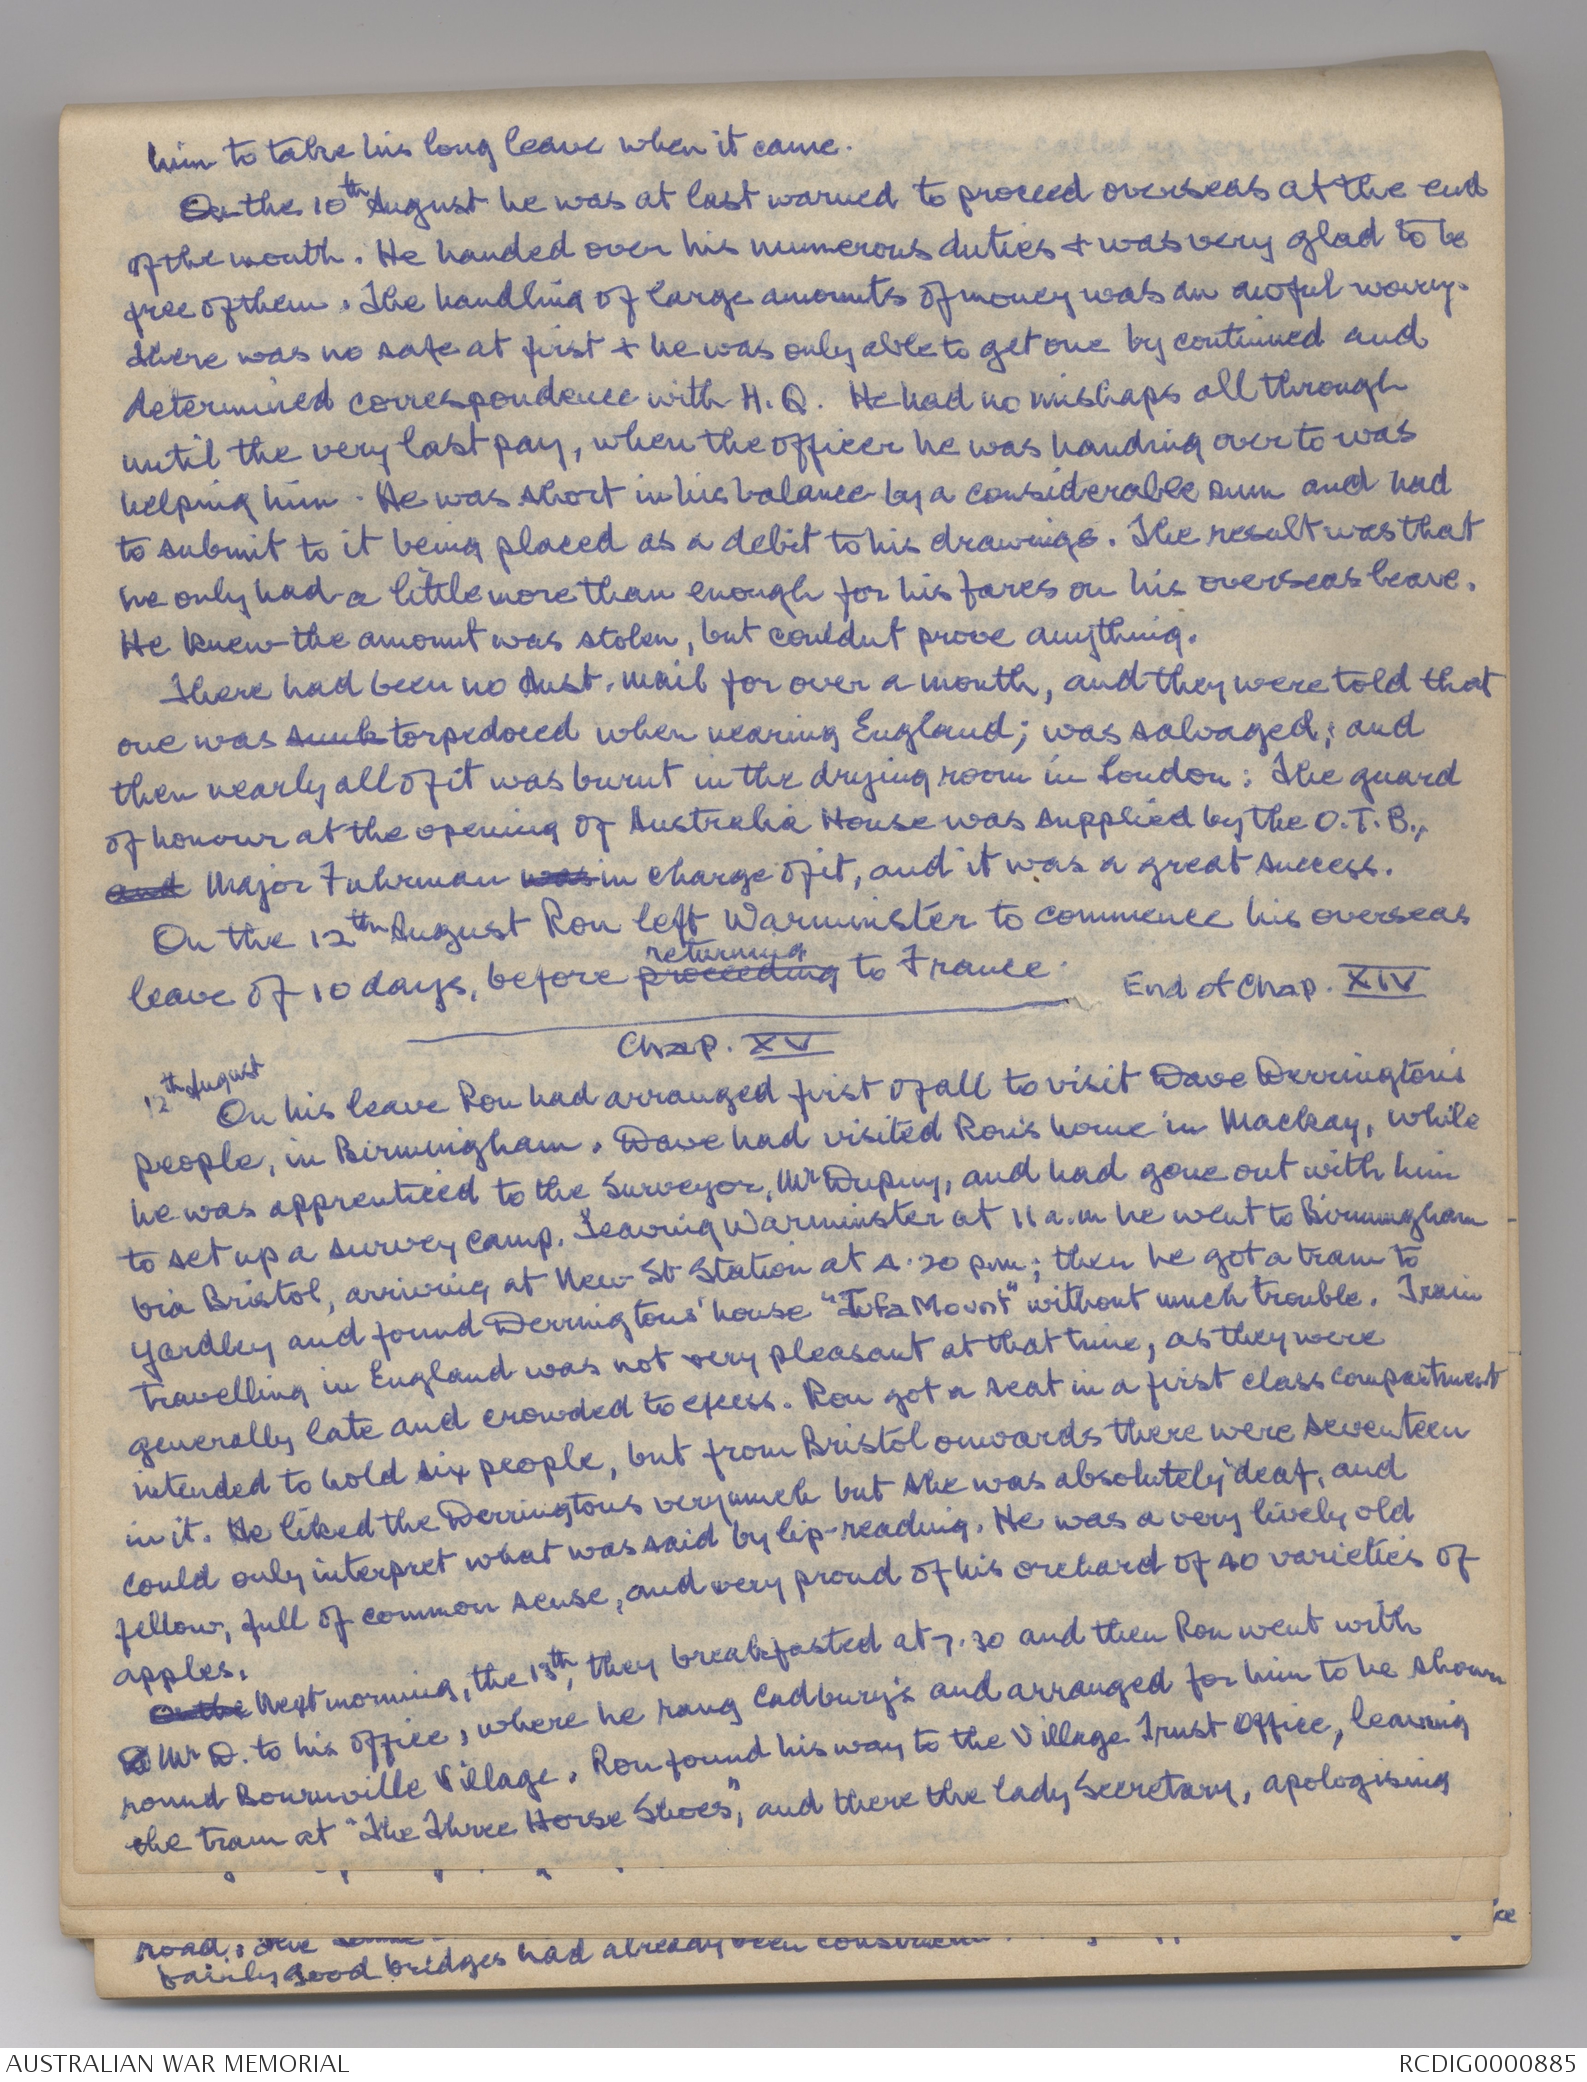 him to take his long leave when it came.
On the 10th August he was at last warned to proceed overseas at the end
of the month. He handed over his numerous duties + was very glad to be
free of them. The handling of large amounts of money was an awful worry.
There was no safe at first + he was only able to get one by continued and
determined correspondence with H.Q. He had no mishaps all through
until the very last pay, when the officer he was handing over to was
helping him. He was short in his balance by a considerable sum and had
to submit to it being placed as a debit to his drawings. The result was that
he only had a little more than enough for his fares on his overseas leave.
He knew the amount was stolen, but couldnt prove anything.
There had been no Aust. mail for over a month, and they were told that
one was sunk torpedoed when nearing England; was salvaged; and
then nearly all of it was burnt in the drying room in London: The guard
of honour at the opening of Australia House was supplied by the O.T.B.,
and Major Fuhrman was in charge of it, and it was a great success.
On the 12th August Ron left Warminster to commence his overseas
returning
leave of 10 days, before proceeding to France.
End of Chap. XIV
Chap. XV
12th August
On his leave Ron had arranged first of all to visit Dave Derrington's
people, in Birmingham. Dave had visited Ron's home in Mackay, while
he was apprenticed to the Surveyor, Mr Dupuy, and had gone out with him
to set up a survey camp. Leaving Warminster at 11 a.m. he went to Birmingham
via Bristol, arriving at New St Station at 4.20 p.m; then he got a tram to
Yardley and found Derringtons' house " Mount" without much trouble. Train
travelling in England was not very pleasant at that time, as they were
generally late and crowded to excess. Ron got a seat in a first class compartment
intended to hold six people, but from Bristol onwards there were seventeen
in it. He liked the Derringtons very much but she was absolutely deaf, and
could only interpret what was said by lip-reading. He was a very lively old
fellow, full of common sense, and very proud of his orchard of 40 varieties of
apples.
On the Next morning, the 13th, they breakfasted at 7.30 and then Ron went with
Mr D. to his office, where he rang Cadbury's and arranged for him to be shown
round Bournville Village. Ron found his way to the Village Trust Office, leaving
the tram at "The Three Horse Shoes", and there the lady Secretary, apologising
road; the
fairly good bridges had already been
AUSTRALIAN WAR MEMORIAL
RCDIG0000885